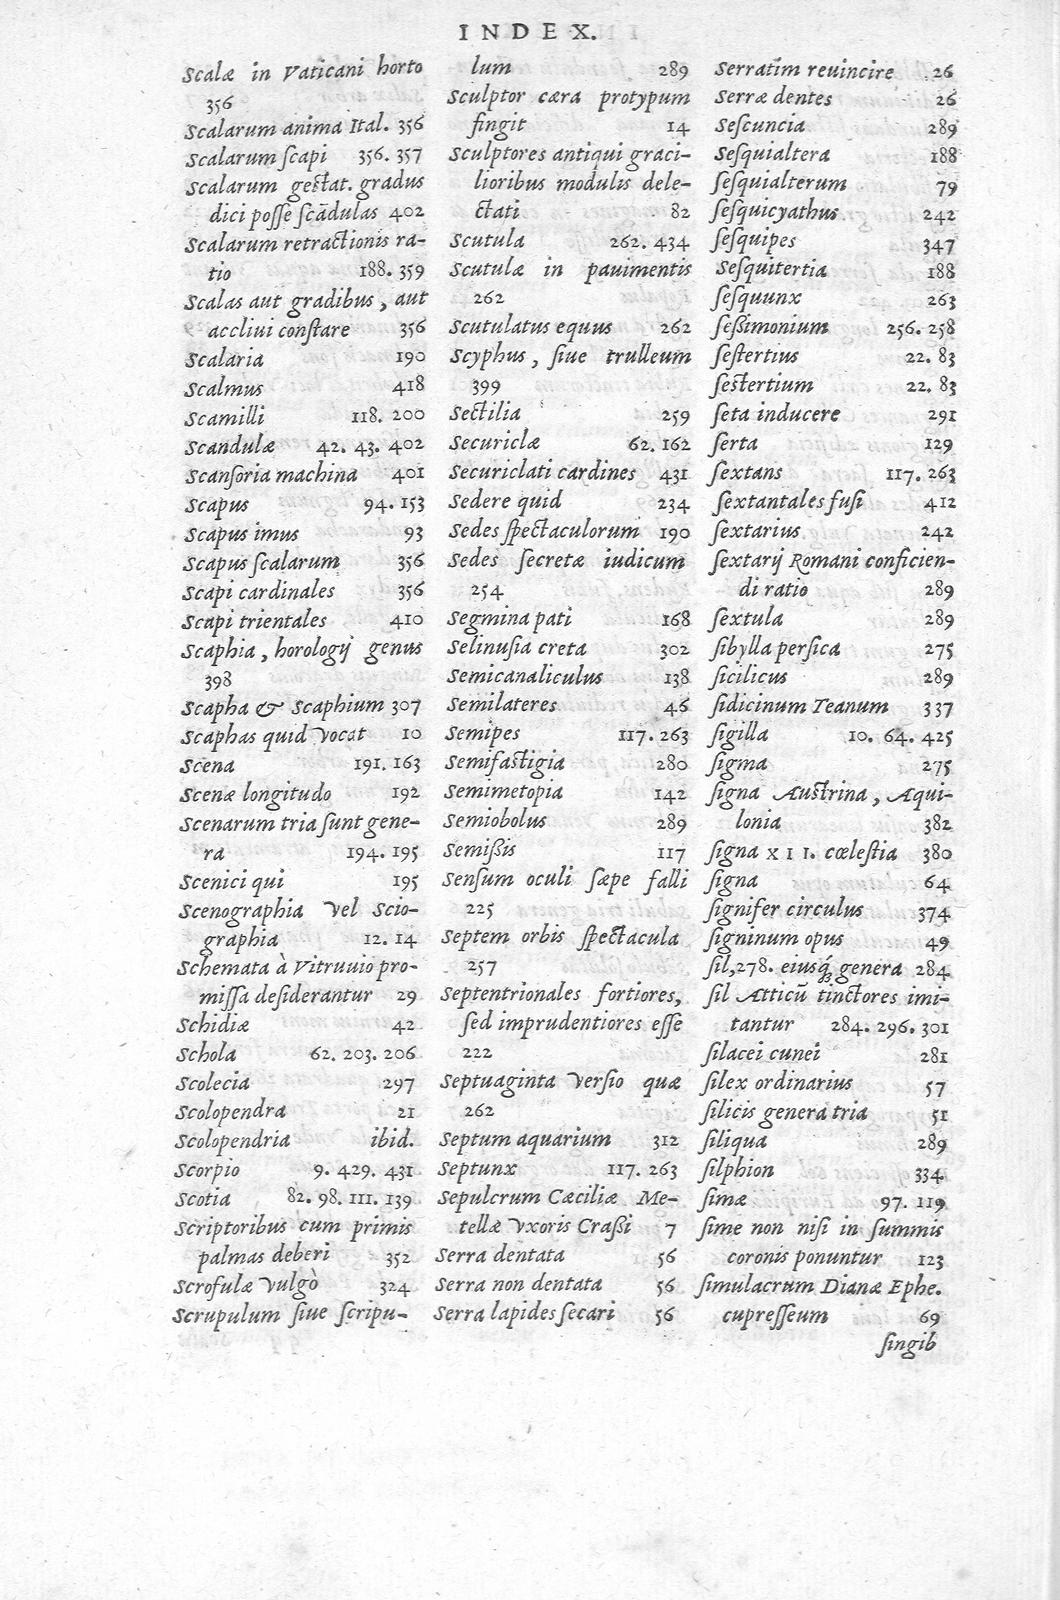 INDEX.
Scalæ in Vaticani horto
356
Scalarum anima Ital. 356
Scalarum ſcapi 356. 357
Scalarum geſtat. gradus
dici poſſe ſcādulas 402
Scalarum retractionis ra-
tio 188. 359
Scalas aut gradibus, aut
accliui conſtare 356
Scalaria 190
Scalmus 418
Scamilli 118. 200
Scandulæ 42. 43. 402
Scanſoria machina 401
Scapus 94. 153
Scapus imus 93
Scapus ſcalarum 356
Scapi cardinales 356
Scapi trientales 410
Scaphia, horologij genus
398
Scapha & Scaphium 307
Scaphas quid vocat 10
Scena 191. 163
Scenæ longitudo 192
Scenarum tria ſunt gene-
ra 194. 195
Scenici qui 195
Scenographia vel Scio-
graphia 12. 14
Schemata à Vitruuio pro-
miſſa deſiderantur 29
Schidiæ 42
Schola 62. 203. 206
Scolecia 297
Scolopendra 21
Scolopendria ibid.
Scorpio 9. 429. 431
Scotia 82. 98. 111. 139
Scriptoribus cum primis
palmas deberi 352
Scrofulæ vulgò 324
Scrupulum ſiue ſcripu-
lum 289
Sculptor cæra protypum
fingit 14
Sculptores antiqui graci-
lioribus modulis dele-
ctati 82
Scutula 262. 434
Scutulæ in pauimentis
262
Scutulatus equus 262
Scyphus, ſiue trulleum
399
Sectilia 259
Securiclæ 62. 162
Securiclati cardines 431
Sedere quid 234
Sedes ſpectaculorum 190
Sedes ſecretæ iudicum
254
Segmina pati 168
Selinuſia creta 302
Semicanaliculus 138
Semilateres 46
Semipes 117. 263
Semifaſtigia 280
Semimetopia 142
Semiobolus 289
Semiſsis 117
Senſum oculi ſæpe falli
225
Septem orbis ſpectacula
257
Septentrionales fortiores,
ſed imprudentiores eſſe
222
Septuaginta verſio quæ
262
Septum aquarium 312
Septunx 117. 263
Sepulcrum Cæciliæ Me-
tellæ vxoris Craſsi 7
Serra dentata 56
Serra non dentata 56
Serra lapides ſecari 56
Serratim reuincire 26
Serræ dentes 26
Seſcuncia 289
Seſquialtera 188
ſeſquialterum 79
ſeſquicyathus 242
ſeſquipes 347
Seſquitertia 188
ſeſquunx 263
ſeſsimonium 256. 258
ſeſtertius 22. 83
ſeſtertium 22. 83
ſeta inducere 291
ſerta 129
ſextans 117. 263
ſextantales fuſi 412
ſextarius 242
ſextarij Romani conficien-
di ratio 289
ſextula 289
ſibylla perſica 275
ſicilicus 289
ſidicinum Teanum 337
ſigilla 10. 64. 425
ſigma 275
ſigna Auſtrina, Aqui-
lonia 382
ſigna XII. cœleſtia 380
ſigna 64
ſignifer circulus 374
ſigninum opus 49
ſil, 278. eiuſq́; genera 284
ſil Atticū tinctores imi-
tantur 284. 296. 301
ſilacei cunei 281
ſilex ordinarius 57
ſilicis genera tria 51
ſiliqua 289
ſilphion 334
ſimæ 97. 119
ſime non niſi in ſummis
coronis ponuntur 123
ſimulacrum Dianæ Ephe.
cupreſſeum 69
ſingib